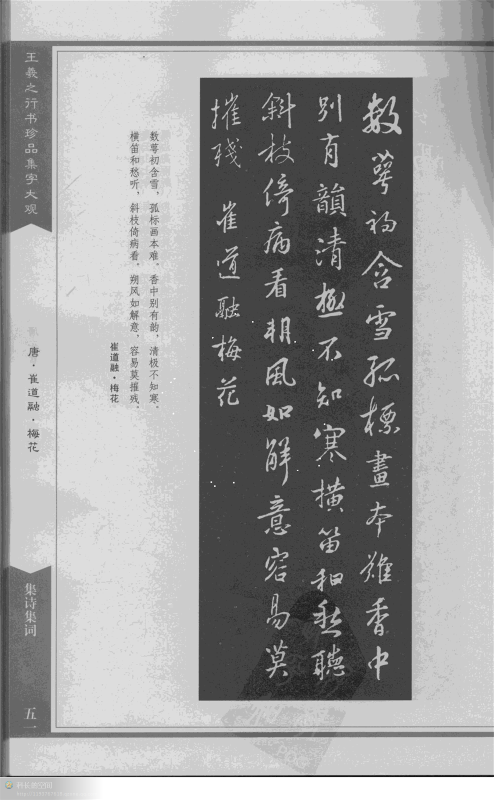 数萼初含雪孤標畫本難香中
别有韻清極不知寒横笛和愁聽
斜枝倚病看朔風如解意容易莫
摧殘 崔道融梅花
数萼初含雪，孤标画本难。香中别有韵，清极不知寒。
横笛和愁听，斜枝倚病看。朔风如解意，容易莫摧残。
崔道融·梅花
王羲之行书珍品集字大观
唐·崔道融·梅花
集诗集词
五一